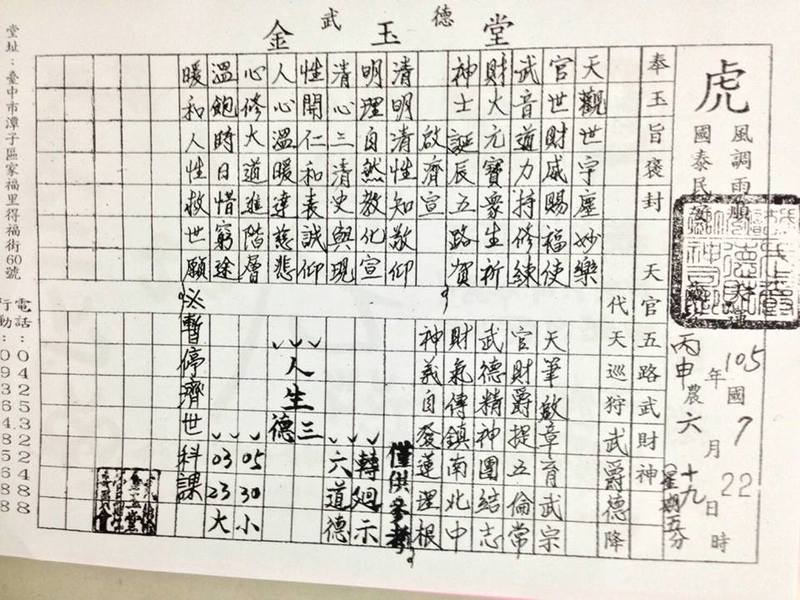 金玉堂
武德
虎
風調雨順
國泰民安
105國7
年 月 22日 時
丙申農六 十九
(星期五分
奉玉旨褒封 天官五路武財神
代天巡狩 武爵德降
天觀世宇塵妙樂
官世財威賜福使
武音道力持修練
財大元寶眾生祈
神士誕辰五路賀
啟濟宣
天筆啟章育武宗
官財爵提五倫常
武德精神團結志
財氣傳鎮南北中
神義自發蓮理根
清明清性知敬仰
明理自然教化宣
清心三清史與現
性開仁和表誠仰
人心溫暖達慈悲
心修大道進階層
溫飽時日惜窮途
暖和人性救世願
僅供參考
轉廻示
六道德
人生三德
05 30 小
03 23 大
※暫停濟世科課
堂址：臺中市潭子區家福里得福街60號
電話：04 25324688
行動：0936852588